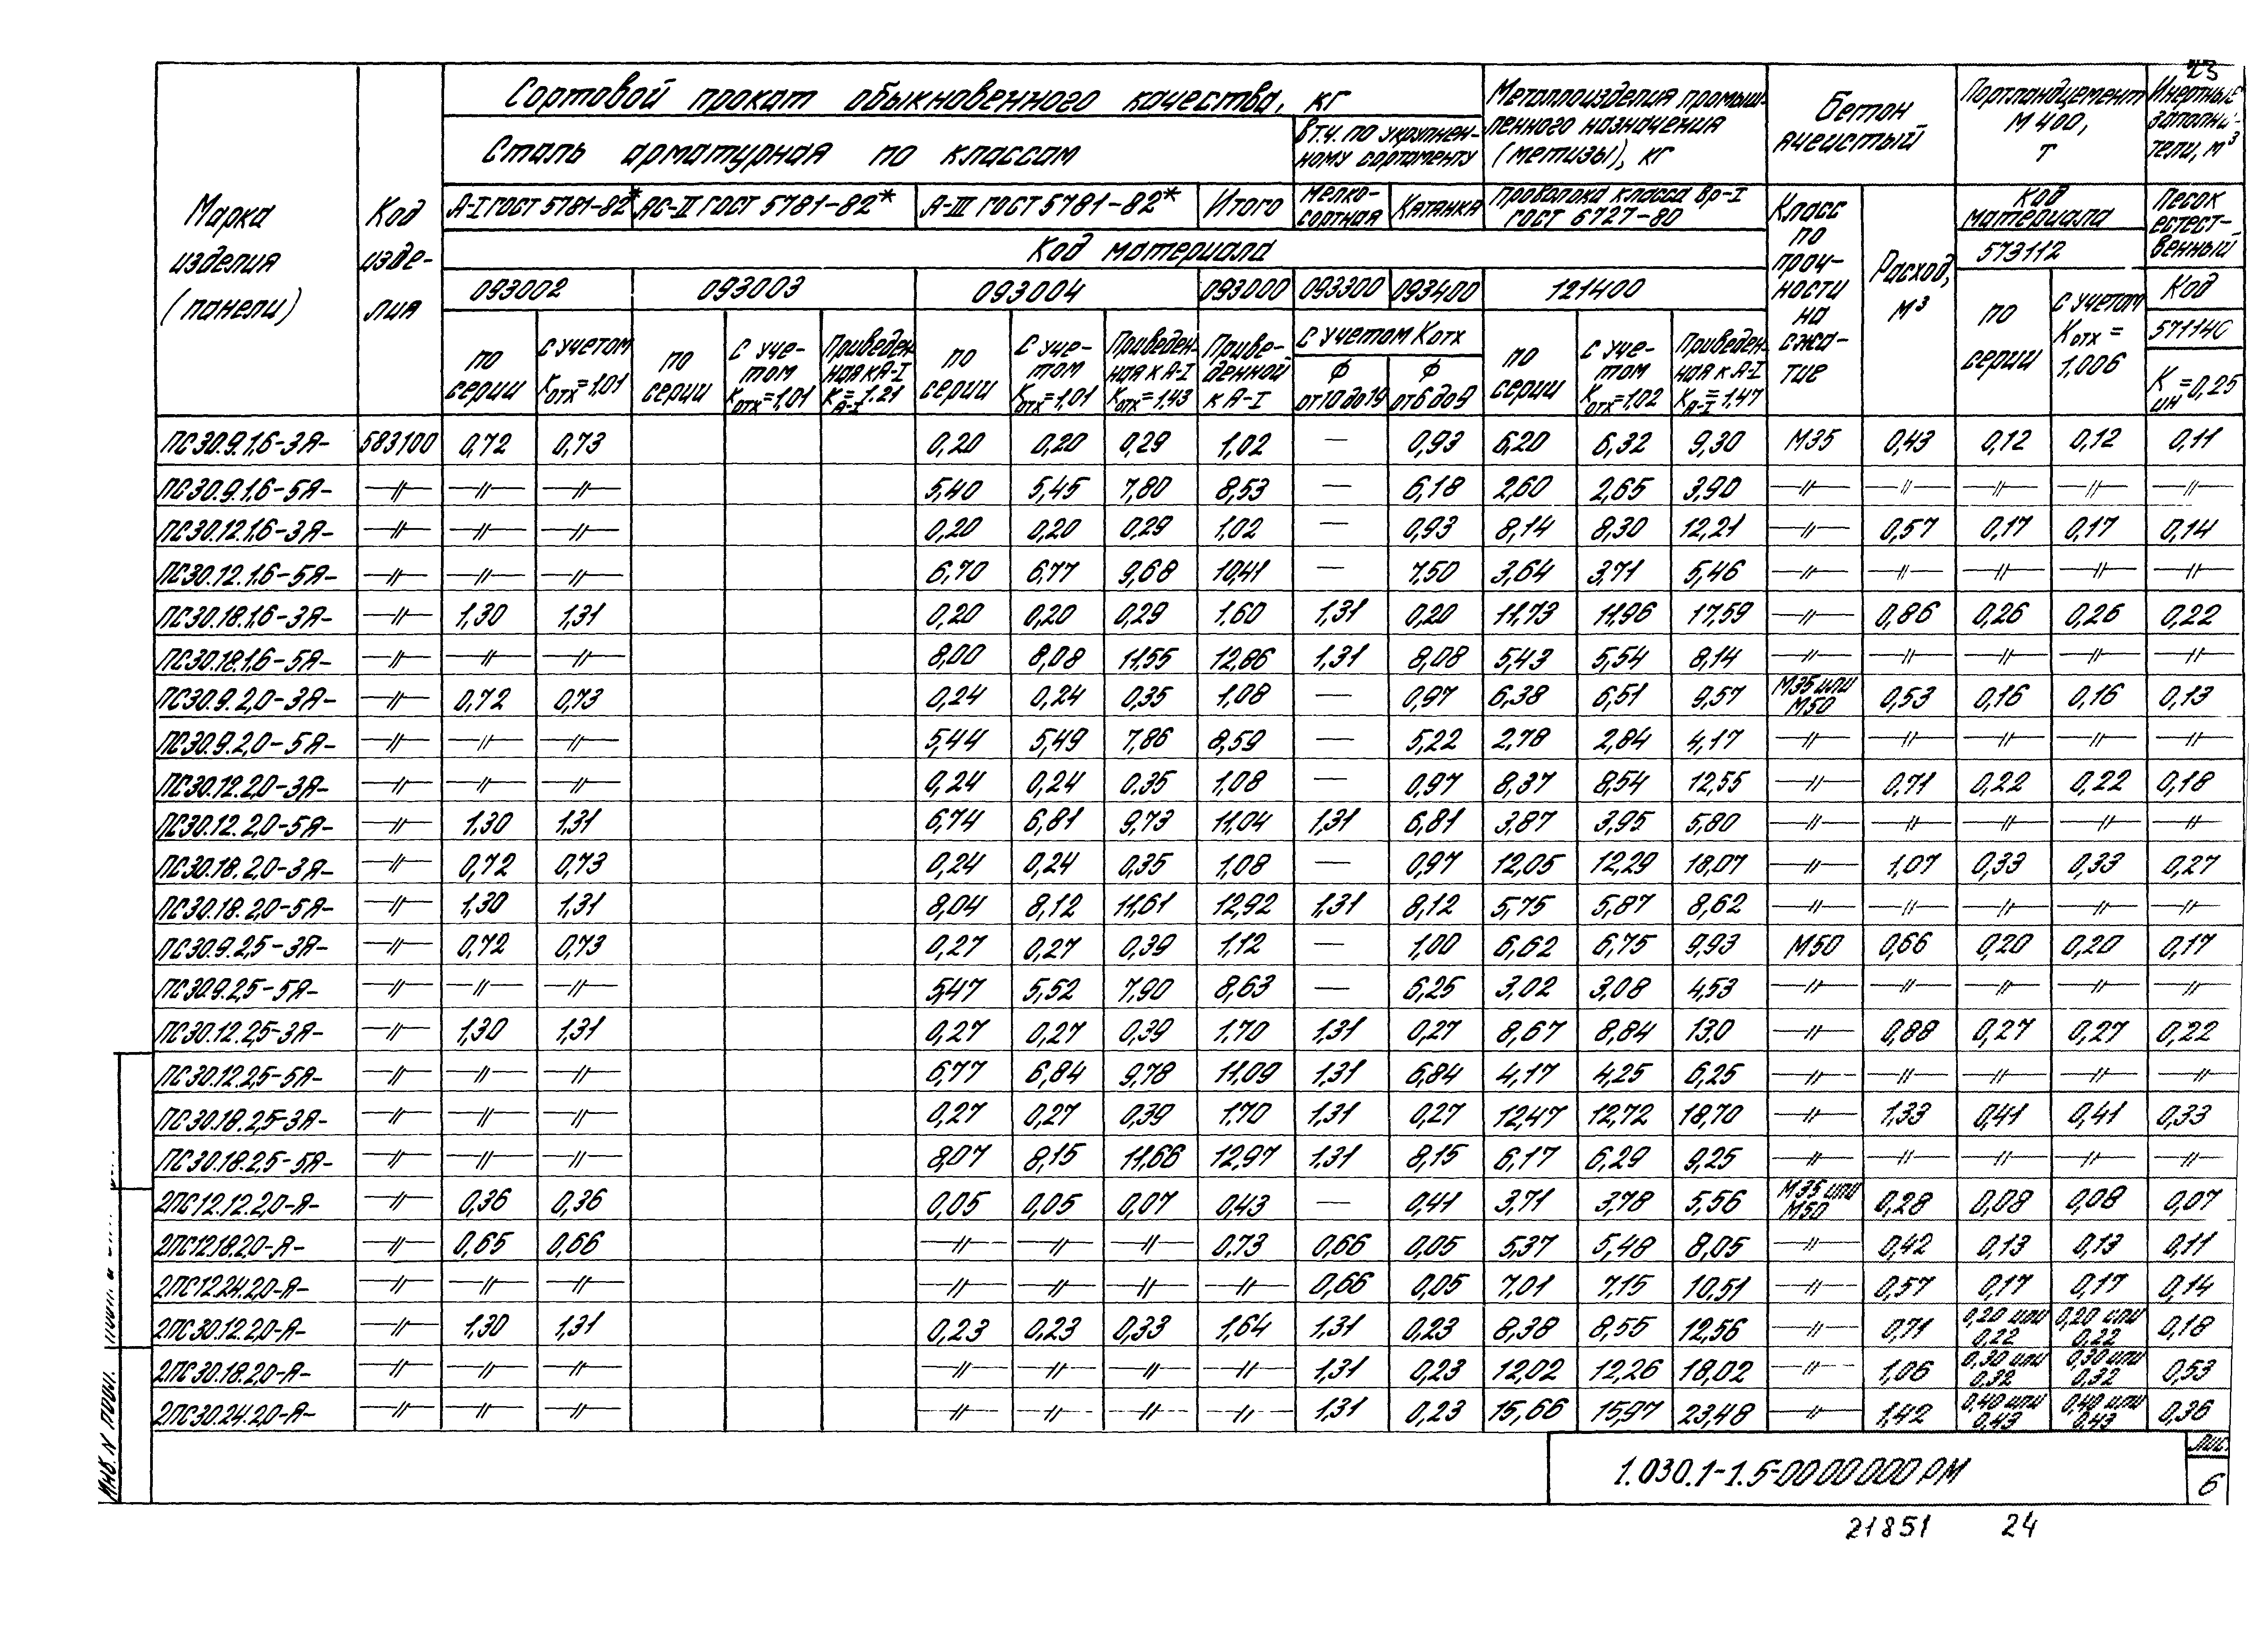 23
Марка изделия (панели)
Код изделия
Сортовой прокат обыкновенного качества, кг
Сталь арматурная по классам
В т.ч. по укрупненному сортаменту
Металлоизделия промышленного назначения (метизы), кг
Бетон ячеистый
Портландцемент М400, Т
Инертные заполнители, м³
А-I ГОСТ 5781-82* АС-II ГОСТ 5781-82* А-III ГОСТ 5781-82* Итого Мелкосортная Катанка Проволока класса Вр-I ГОСТ 6727-80
Класс по прочности на сжатие
Расход, м³
Код материала
573112
Песок естественный
Код материала
093002 093003 093004 093000 093300 093400 121400
Код
57114С
по серии С учетом Котх=1,01 по серии С учетом Котх=1,01 Приведенная к А-I КА-I=1.21 по серии С учетом Котх=1,01 Приведенная к А-I Котх=1,43 Приведенной к А-I
С учетом Котх
ф от 10 до 19 ф от 6 до 9
по серии С учетом Котх=1,02 Приведенная к А-I КА-I=1,47
по серии С учетом Котх=1,006
Кин=0,25
ПС30.9.1,6-3Я- 583100 0,72 0,73 0,20 0,20 0,29 1,02 — 0,93 6,20 6,32 9,30 М35 0,43 0,12 0,12 0,11
ПС30.9.1,6-5Я- —〃— —〃— —〃— 5,40 5,45 7,80 8,53 — 6,18 2,60 2,65 3,90 —〃— —〃— —〃— —〃— —〃—
ПС30.12.1,6-3Я- —〃— —〃— —〃— 0,20 0,20 0,29 1,02 — 0,93 8,14 8,30 12,21 —〃— 0,57 0,17 0,17 0,14
ПС30.12.1,6-5Я- —〃— —〃— —〃— 6,70 6,77 9,68 10,41 — 7,50 3,64 3,71 5,46 —〃— —〃— —〃— —〃— —〃—
ПС30.18.1,6-3Я- —〃— 1,30 1,31 0,20 0,20 0,29 1,60 1,31 0,20 11,73 11,96 17,59 —〃— 0,86 0,26 0,26 0,22
ПС30.18.1,6-5Я- —〃— —〃— —〃— 8,00 8,08 11,55 12,86 1,31 8,08 5,43 5,54 8,14 —〃— —〃— —〃— —〃— —〃—
ПС30.9.2,0-3Я- —〃— 0,72 0,73 0,24 0,24 0,35 1,08 — 0,97 6,38 6,51 9,57 М35 или М50 0,53 0,16 0,16 0,13
ПС30.9.2,0-5Я- —〃— —〃— —〃— 5,44 5,49 7,86 8,59 — 5,22 2,78 2,84 4,17 —〃— —〃— —〃— —〃— —〃—
ПС30.12.2,0-3Я- —〃— —〃— —〃— 0,24 0,24 0,35 1,08 — 0,97 8,37 8,54 12,55 —〃— 0,71 0,22 0,22 0,18
ПС30.12.2,0-5Я- —〃— 1,30 1,31 6,74 6,81 9,73 11,04 1,31 6,81 3,87 3,95 5,80 —〃— —〃— —〃— —〃— —〃—
ПС30.18.2,0-3Я- —〃— 0,72 0,73 0,24 0,24 0,35 1,08 — 0,97 12,05 12,29 18,07 —〃— 1,07 0,33 0,33 0,27
ПС30.18.2,0-5Я- —〃— 1,30 1,31 8,04 8,12 11,61 12,92 1,31 8,12 5,75 5,87 8,62 —〃— —〃— —〃— —〃— —〃—
ПС30.9.2,5-3Я- —〃— 0,72 0,73 0,27 0,27 0,39 1,12 — 1,00 6,62 6,75 9,93 М50 0,66 0,20 0,20 0,17
ПС30.9.2,5-5Я- —〃— —〃— —〃— 5,47 5,52 7,90 8,63 — 6,25 3,02 3,08 4,53 —〃— —〃— —〃— —〃— —〃—
ПС30.12.2,5-3Я- —〃— 1,30 1,31 0,27 0,27 0,39 1,70 1,31 0,27 8,67 8,84 13,0 —〃— 0,88 0,27 0,27 0,22
ПС30.12.2,5-5Я- —〃— —〃— —〃— 6,77 6,84 9,78 11,09 1,31 6,84 4,17 4,25 6,25 —〃— —〃— —〃— —〃— —〃—
ПС30.18.2,5-3Я- —〃— —〃— —〃— 0,27 0,27 0,39 1,70 1,31 0,27 12,47 12,72 18,70 —〃— 1,33 0,41 0,41 0,33
ПС30.18.2,5-5Я- —〃— —〃— —〃— 8,07 8,15 11,66 12,97 1,31 8,15 6,17 6,29 9,25 —〃— —〃— —〃— —〃— —〃—
2ПС12.12.2,0-Я- —〃— 0,36 0,36 0,05 0,05 0,07 0,43 — 0,41 3,71 3,78 5,56 М35 или М50 0,28 0,08 0,08 0,07
2ПС12.18.2,0-Я- —〃— 0,65 0,66 —〃— —〃— —〃— 0,73 0,66 0,05 5,37 5,48 8,05 —〃— 0,42 0,13 0,13 0,11
2ПС12.24.2,0-Я- —〃— —〃— —〃— —〃— —〃— —〃— —〃— 0,66 0,05 7,01 7,15 10,51 —〃— 0,57 0,17 0,17 0,14
2ПС30.12.2,0-Я- —〃— 1,30 1,31 0,23 0,23 0,33 1,64 1,31 0,23 8,38 8,55 12,56 —〃— 0,71 0,20 или 0,22 0,20 или 0,22 0,18
2ПС30.18.2,0-Я- —〃— —〃— —〃— —〃— —〃— —〃— —〃— 1,31 0,23 12,02 12,26 18,02 —〃— 1,06 0,30 или 0,32 0,30 или 0,32 0,53
2ПС30.24.2,0-Я- —〃— —〃— —〃— —〃— —〃— —〃— —〃— 1,31 0,23 15,66 15,97 23,48 —〃— 1,42 0,40 или 0,43 0,40 или 0,43 0,36
Инв. N подл.
1.030.1-1.5-0000000РМ
Лис.
6
21851 24